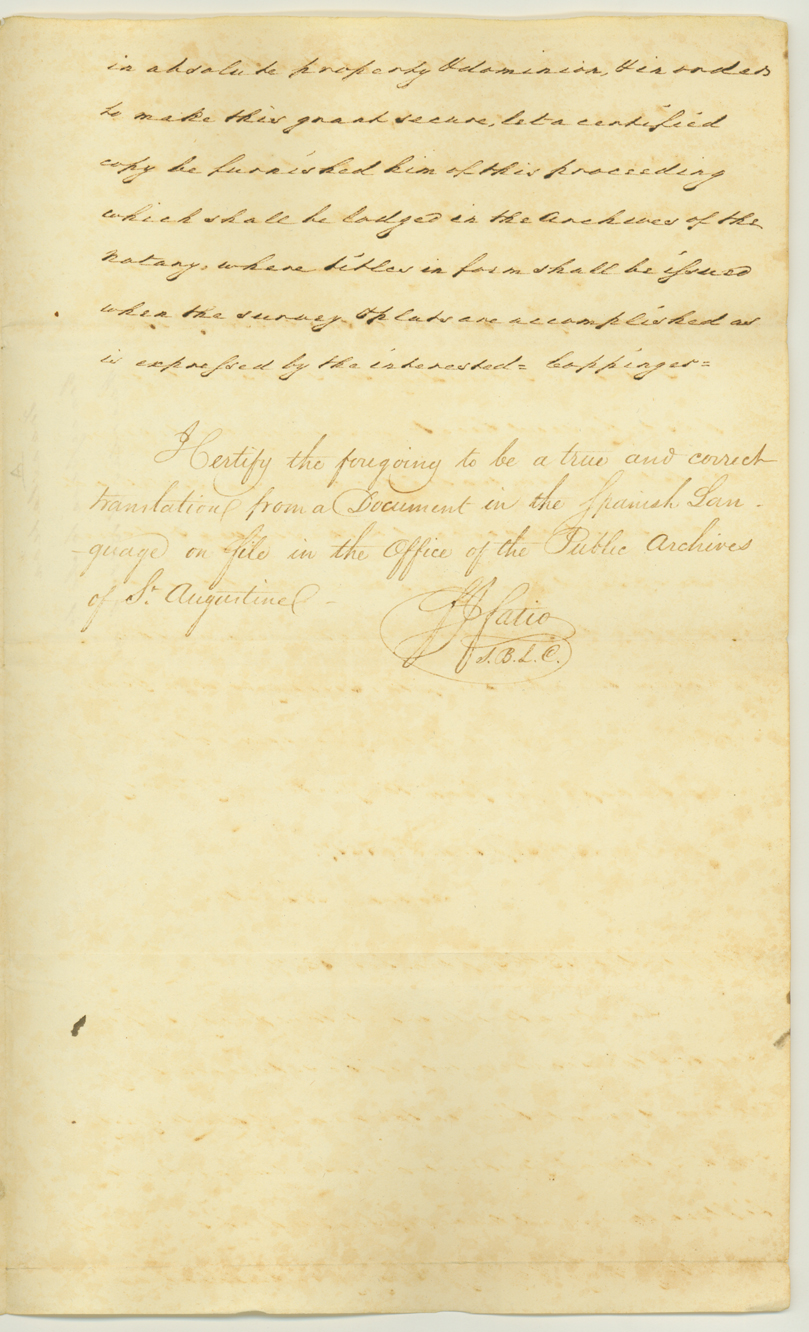 in absolute property & dominion, & in order
to make this grant secure, let a certified
copy be furnished him of this proceeding
which shall be lodged in the Archives of the
Notary, where titles in form shall be issued
when the survey & plats are accomplished as
is expressed by the interested = Coppinger =
I Certify the foregoing to be a true and correct
translation from a Document in the Spanish Lan-
-guage on file in the Office of the Public Archives
of St. Augustine
Fatio
S.B.L.C.